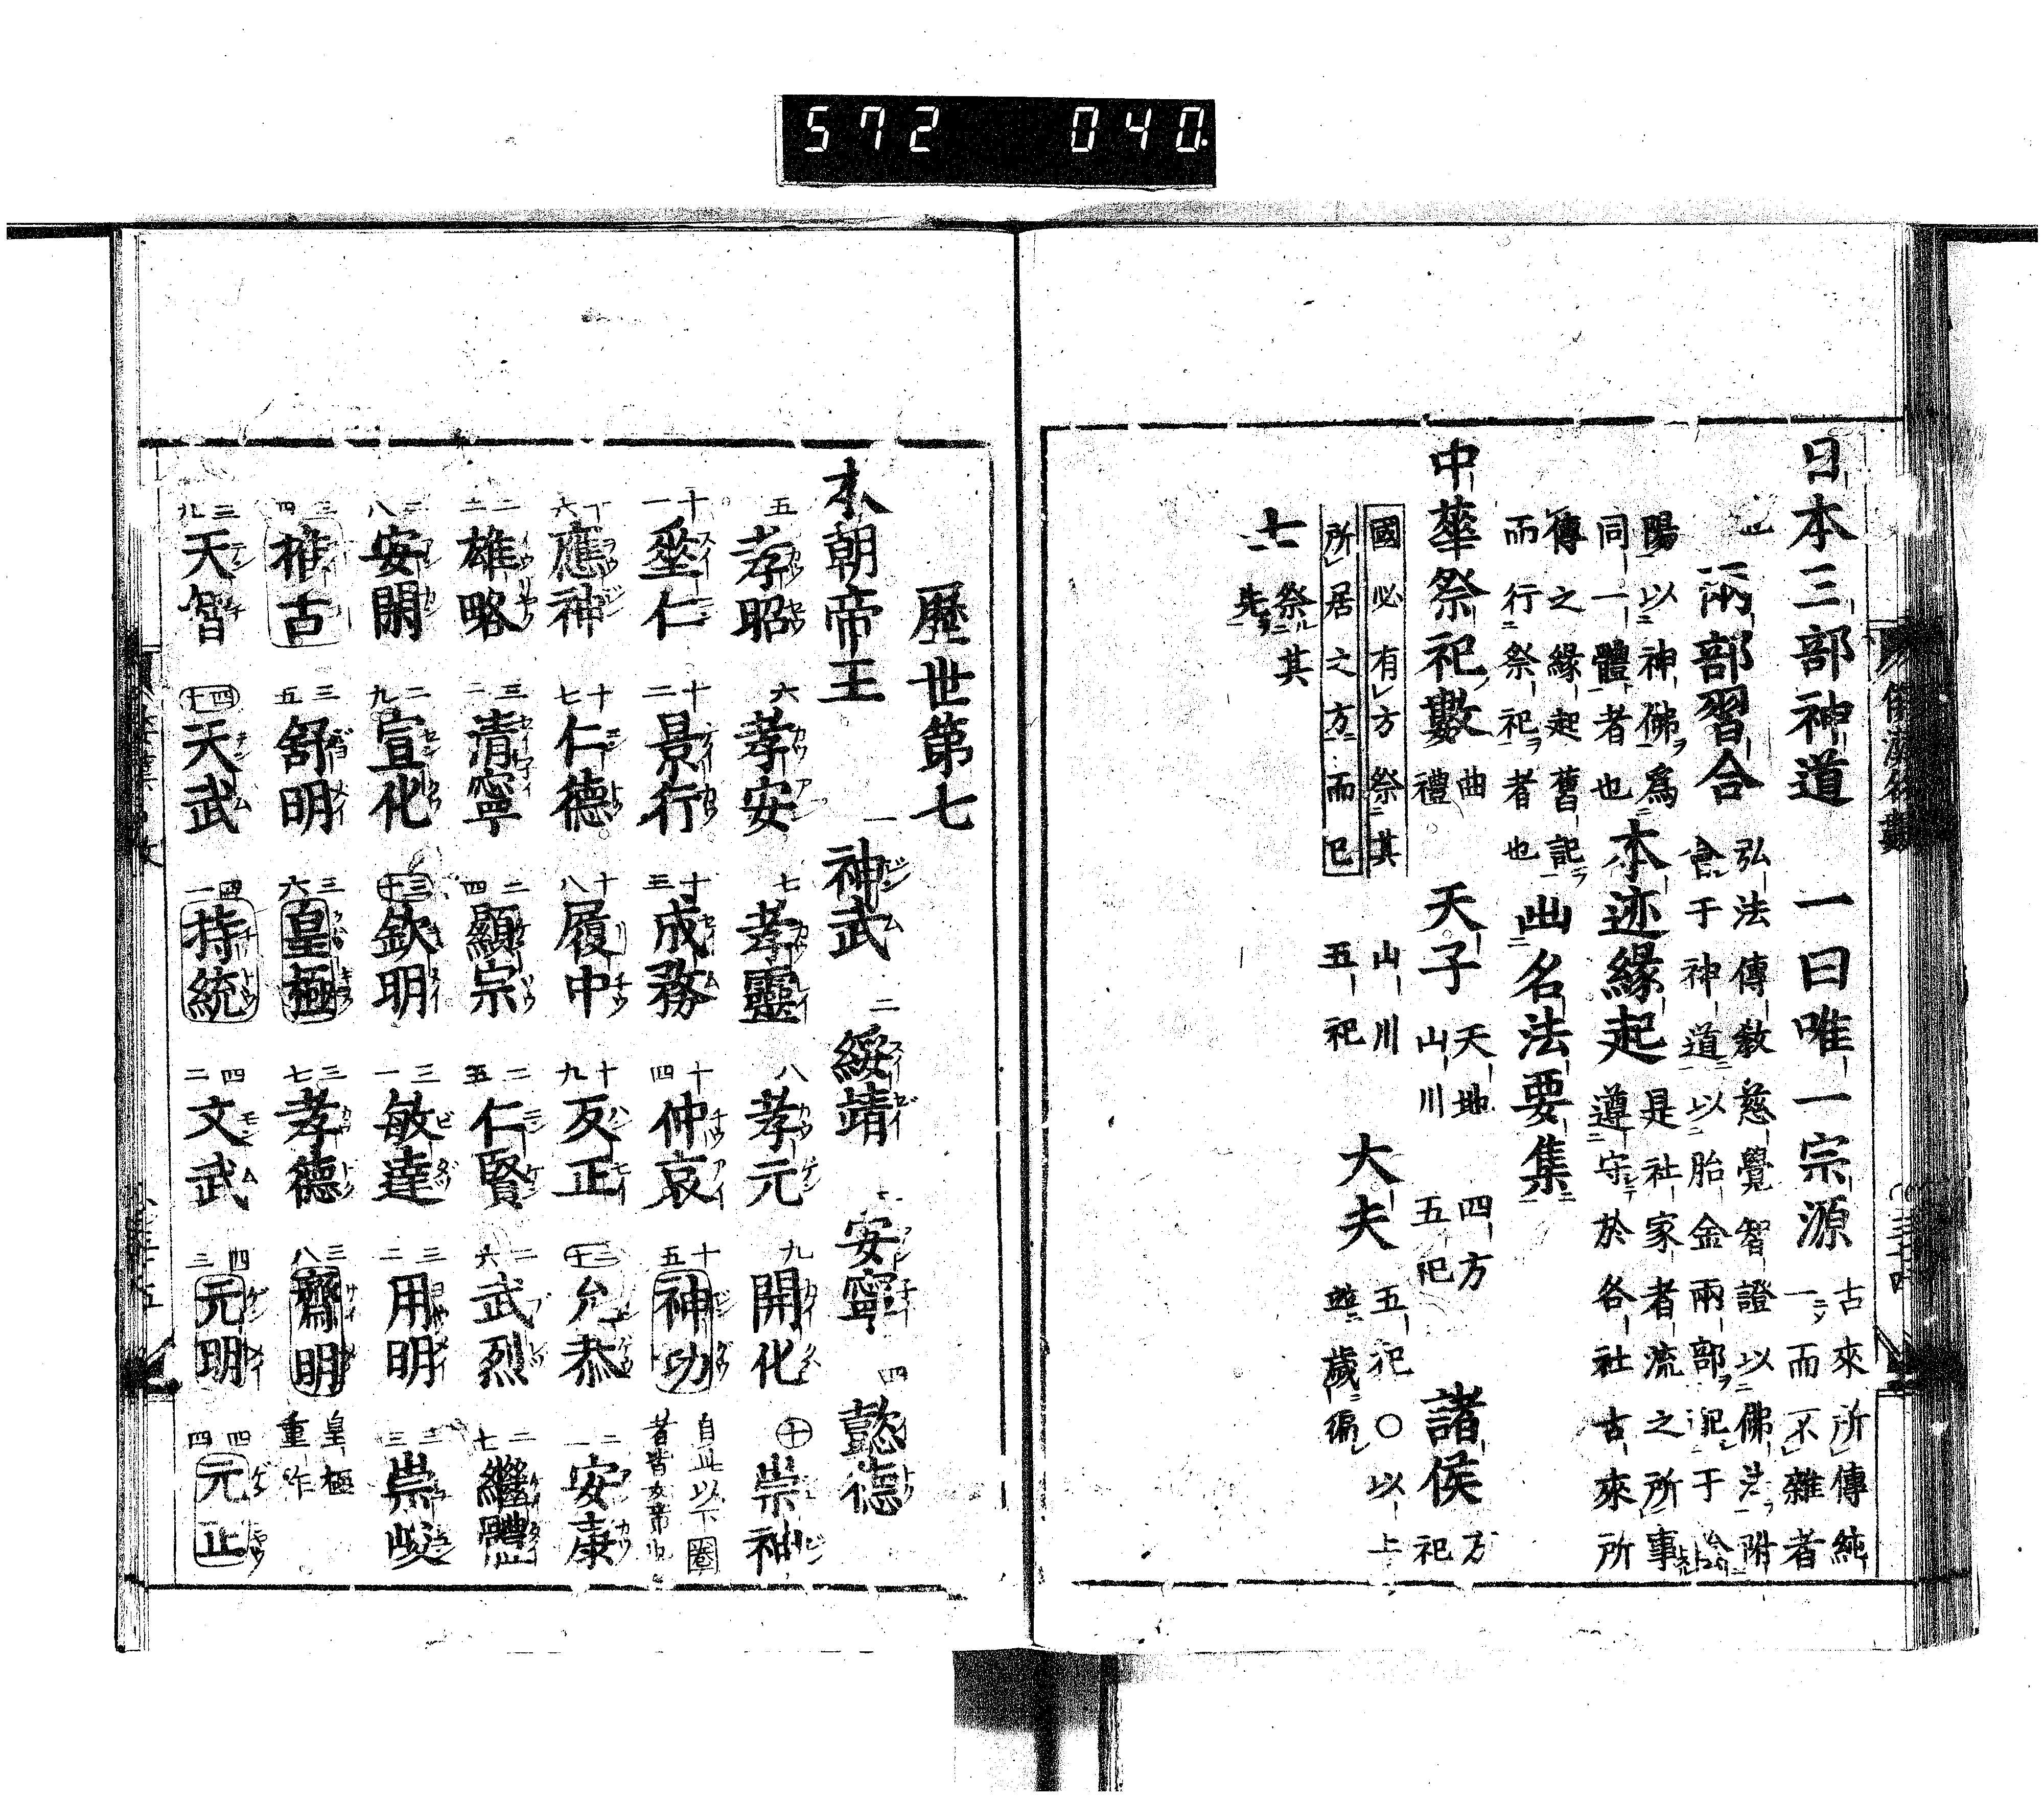 572 040
日本三部神道 一曰唯一宗源 古來所傳純
一而不雜者
兩部習合 弘法傳教慈覺智證以佛法附
會于神道以胎金兩部配于陰
陽以神佛爲
同一體者也 本迹緣起 是社家者流之所事
遵守於各社古來所
傳之緣起舊記
而行祭祀者也 出名法要集
中華祭祀數 曲
禮 天子 天地
山川 四方
五祀 諸侯 方
祀
國必有方祭其
所居之方而已 山川
五祀 大夫 五祀○以上
遊歲徧
士 祭其
先
歷世第七
本朝帝王 一神武 二綏靖 安寧 四懿德
五孝昭 六孝安 七孝靈 八孝元 九開化 十崇神
十一垂仁 十二景行 十三成務 十四仲哀 十五神功 自此以下圈
者皆女帝也
十六應神 十七仁德 十八履中 十九反正 二十允恭 二一安康
二二雄略 二三清寧 二四顯宗 二五仁賢 二六武烈 二七繼體
二八安閑 二九宣化 三十欽明 三一敏達 三二用明 三三崇峻
三四推古 三五舒明 三六皇極 三七孝德 三八齊明 皇極
重祚
三九天智 四十天武 四一持統 四二文武 四三元明 四四元正